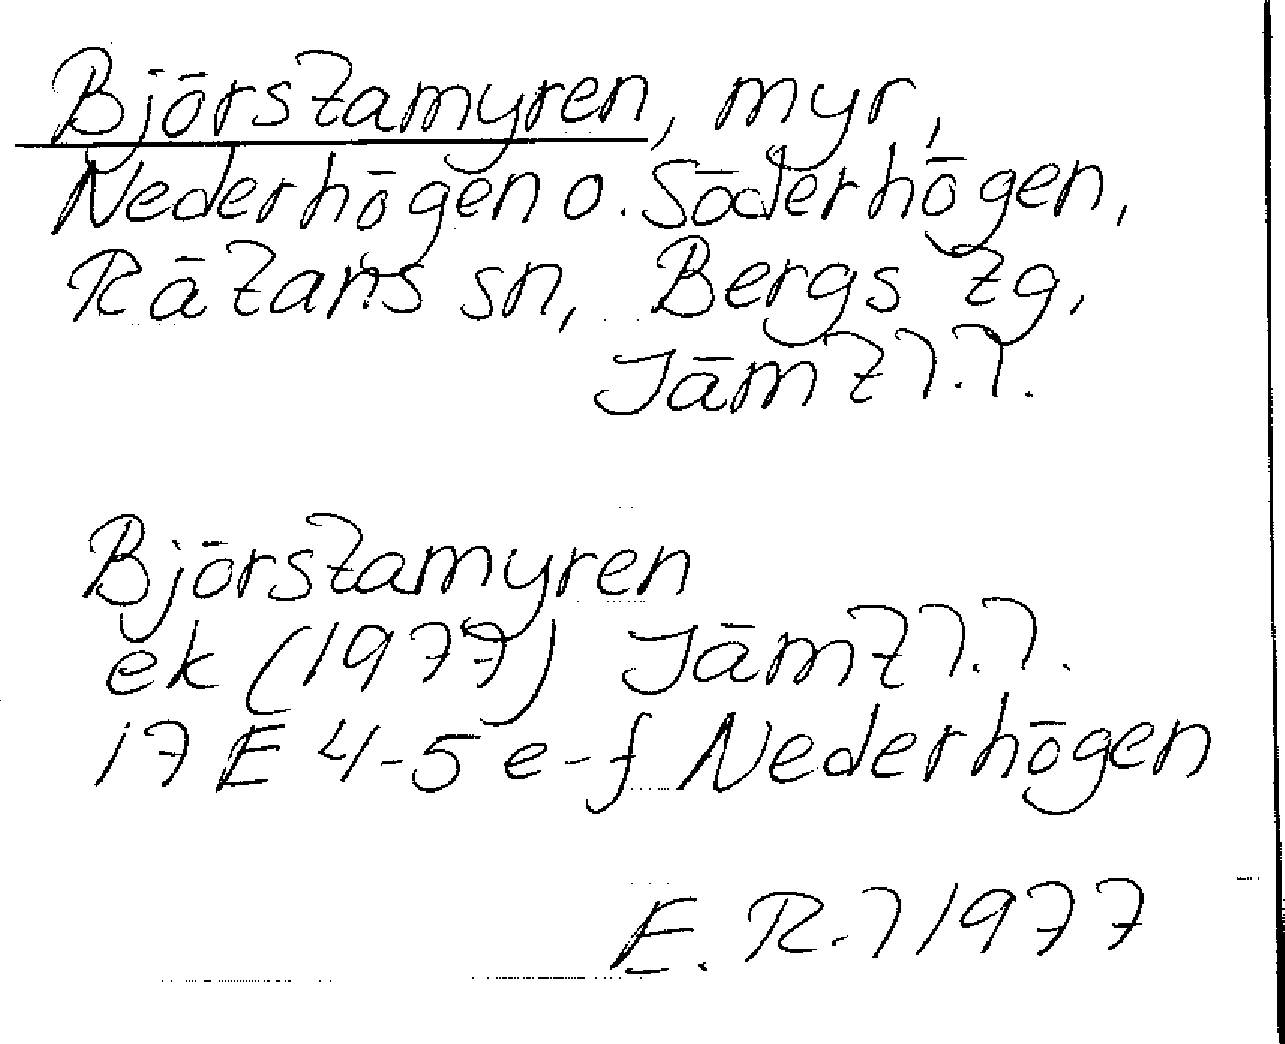 Björstamyren, myr,
Nederhögen o. Söderhögen,
Rätans sn, Bergs tg,
Jämtl.l.
Björstamyren
ek (1977) Jämtl.l.
17 E 4-5 e-f Nederhögen
E. R-l 1977